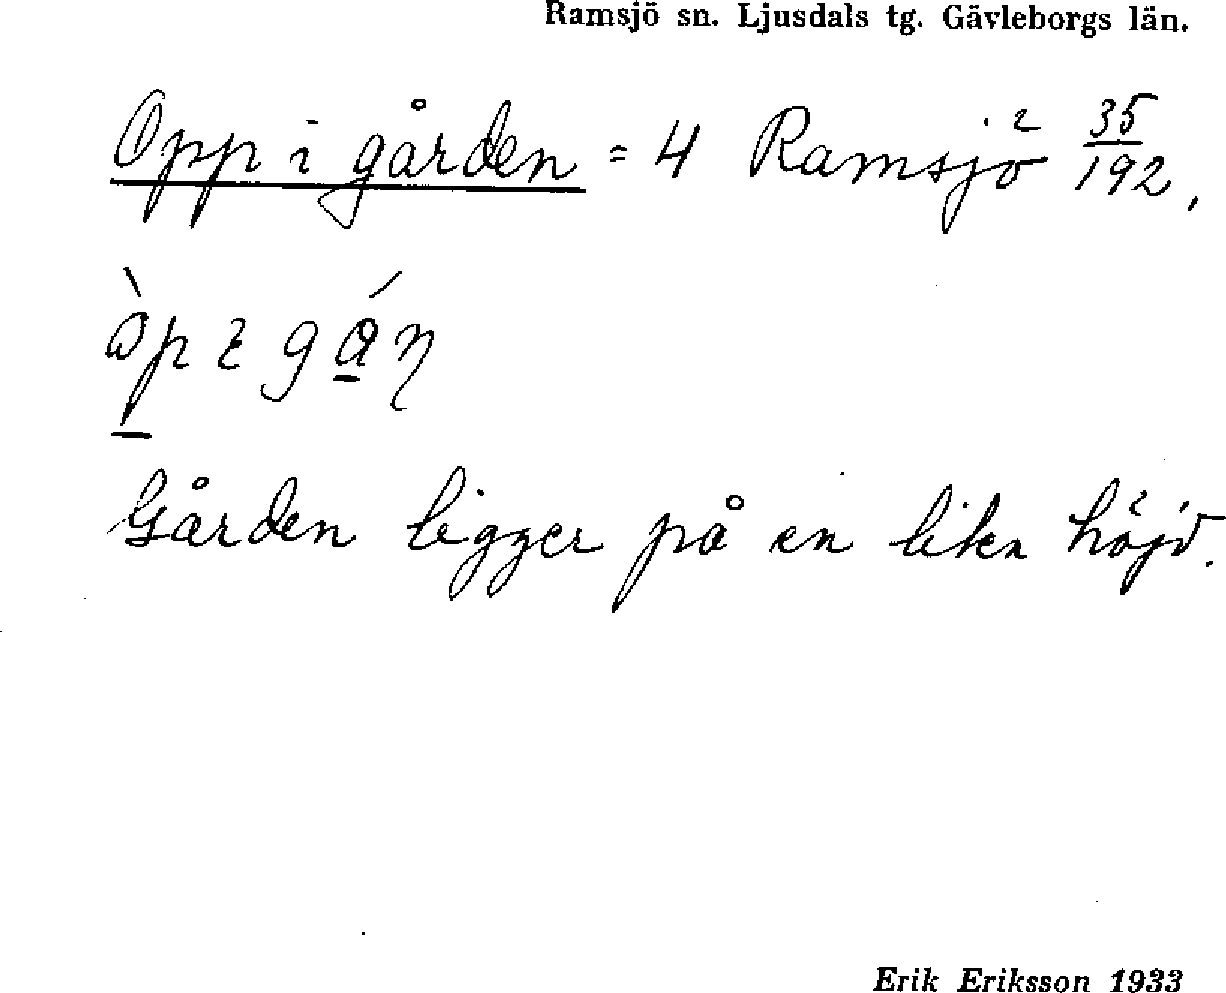 Ramsjö sn. Ljusdals tg. Gävleborgs län.
Opp i gården = 4 Ramsjö 35/192.
Gården ligger på en liten höjd.
Erik Eriksson 1933